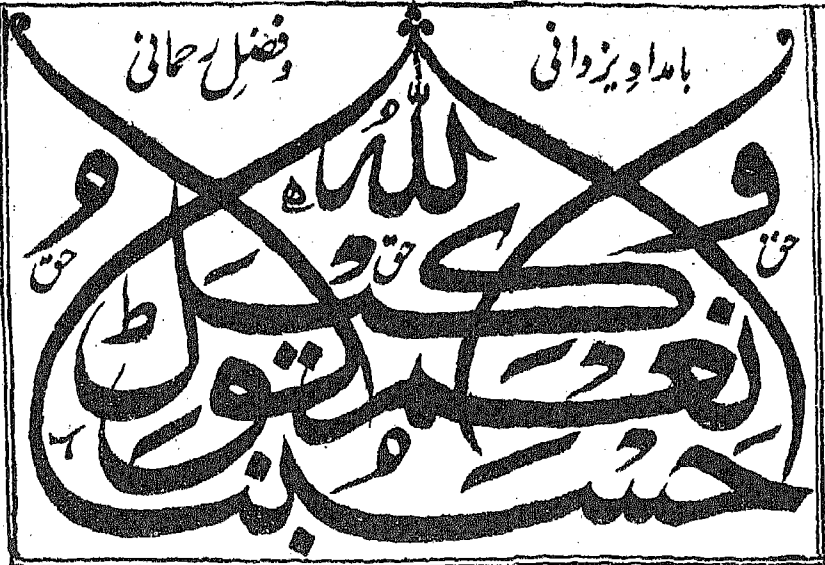 بامدادِ یزدانی
وفضلِ رحمانی
حسبنا اللهُ ونعم الوکیل
حق
حق
حق